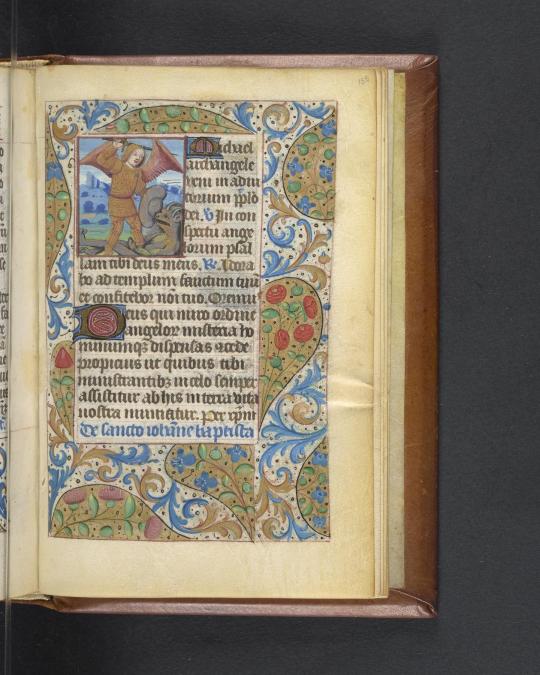 155
Michael
archangele
veni in adiu
torium pplo
dei. V In con
spectu ange
lorum psal
lam tibi deus meus. R. Adora
bo ad templum sanctum tuū
et confitebor nōi tuo. Oremus
Deus qui miro ordine
angelor misteria ho
minumqz dispensas cōcede
propicius ut quibus tibi
ministrantibz in celo semper
assistitur ab his in terra vita
nostra muniatur. Per xp̄m
De sancto iohāne baptista